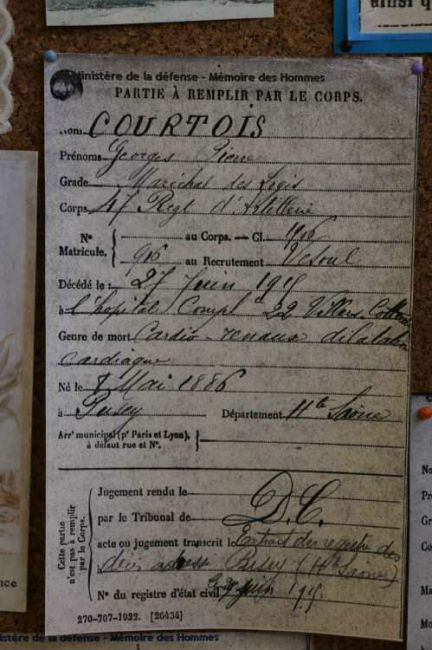 ainsi q
Ministère de la défense - Mémoire des Hommes
PARTIE À REMPLIR PAR LE CORPS.
Nom COURTOIS
Prénoms Georges Pierre
Grade Maréchal des Logis
Corps 47 Regt d'Artillerie
N° Matricule.
au Corps. — Cl. 1906
916 au Recrutement Vesoul
Décédé le : 27 Juin 1915
à l'hopital Compl 22 Villers-Cotterets
Genre de mort Cardio-renaux dilatation
cardiaque
Né le 7 Mai 1886
à Pusey Département Hte Saône
Arrt municipal (pr Paris et Lyon),
à défaut rue et N°.
Cette partie
n'est pas à remplir
par le Corps.
Jugement rendu le
par le Tribunal de D.C.
acte ou jugement transcrit le Extrait du registre des
à Pusey (Hte Saône)
N° du registre d'état civil juin 1915
270-707-1922. [26434]
nce
nistère de la défense - Mémoire des Hommes
No
Pr
Gr
Co
Ma